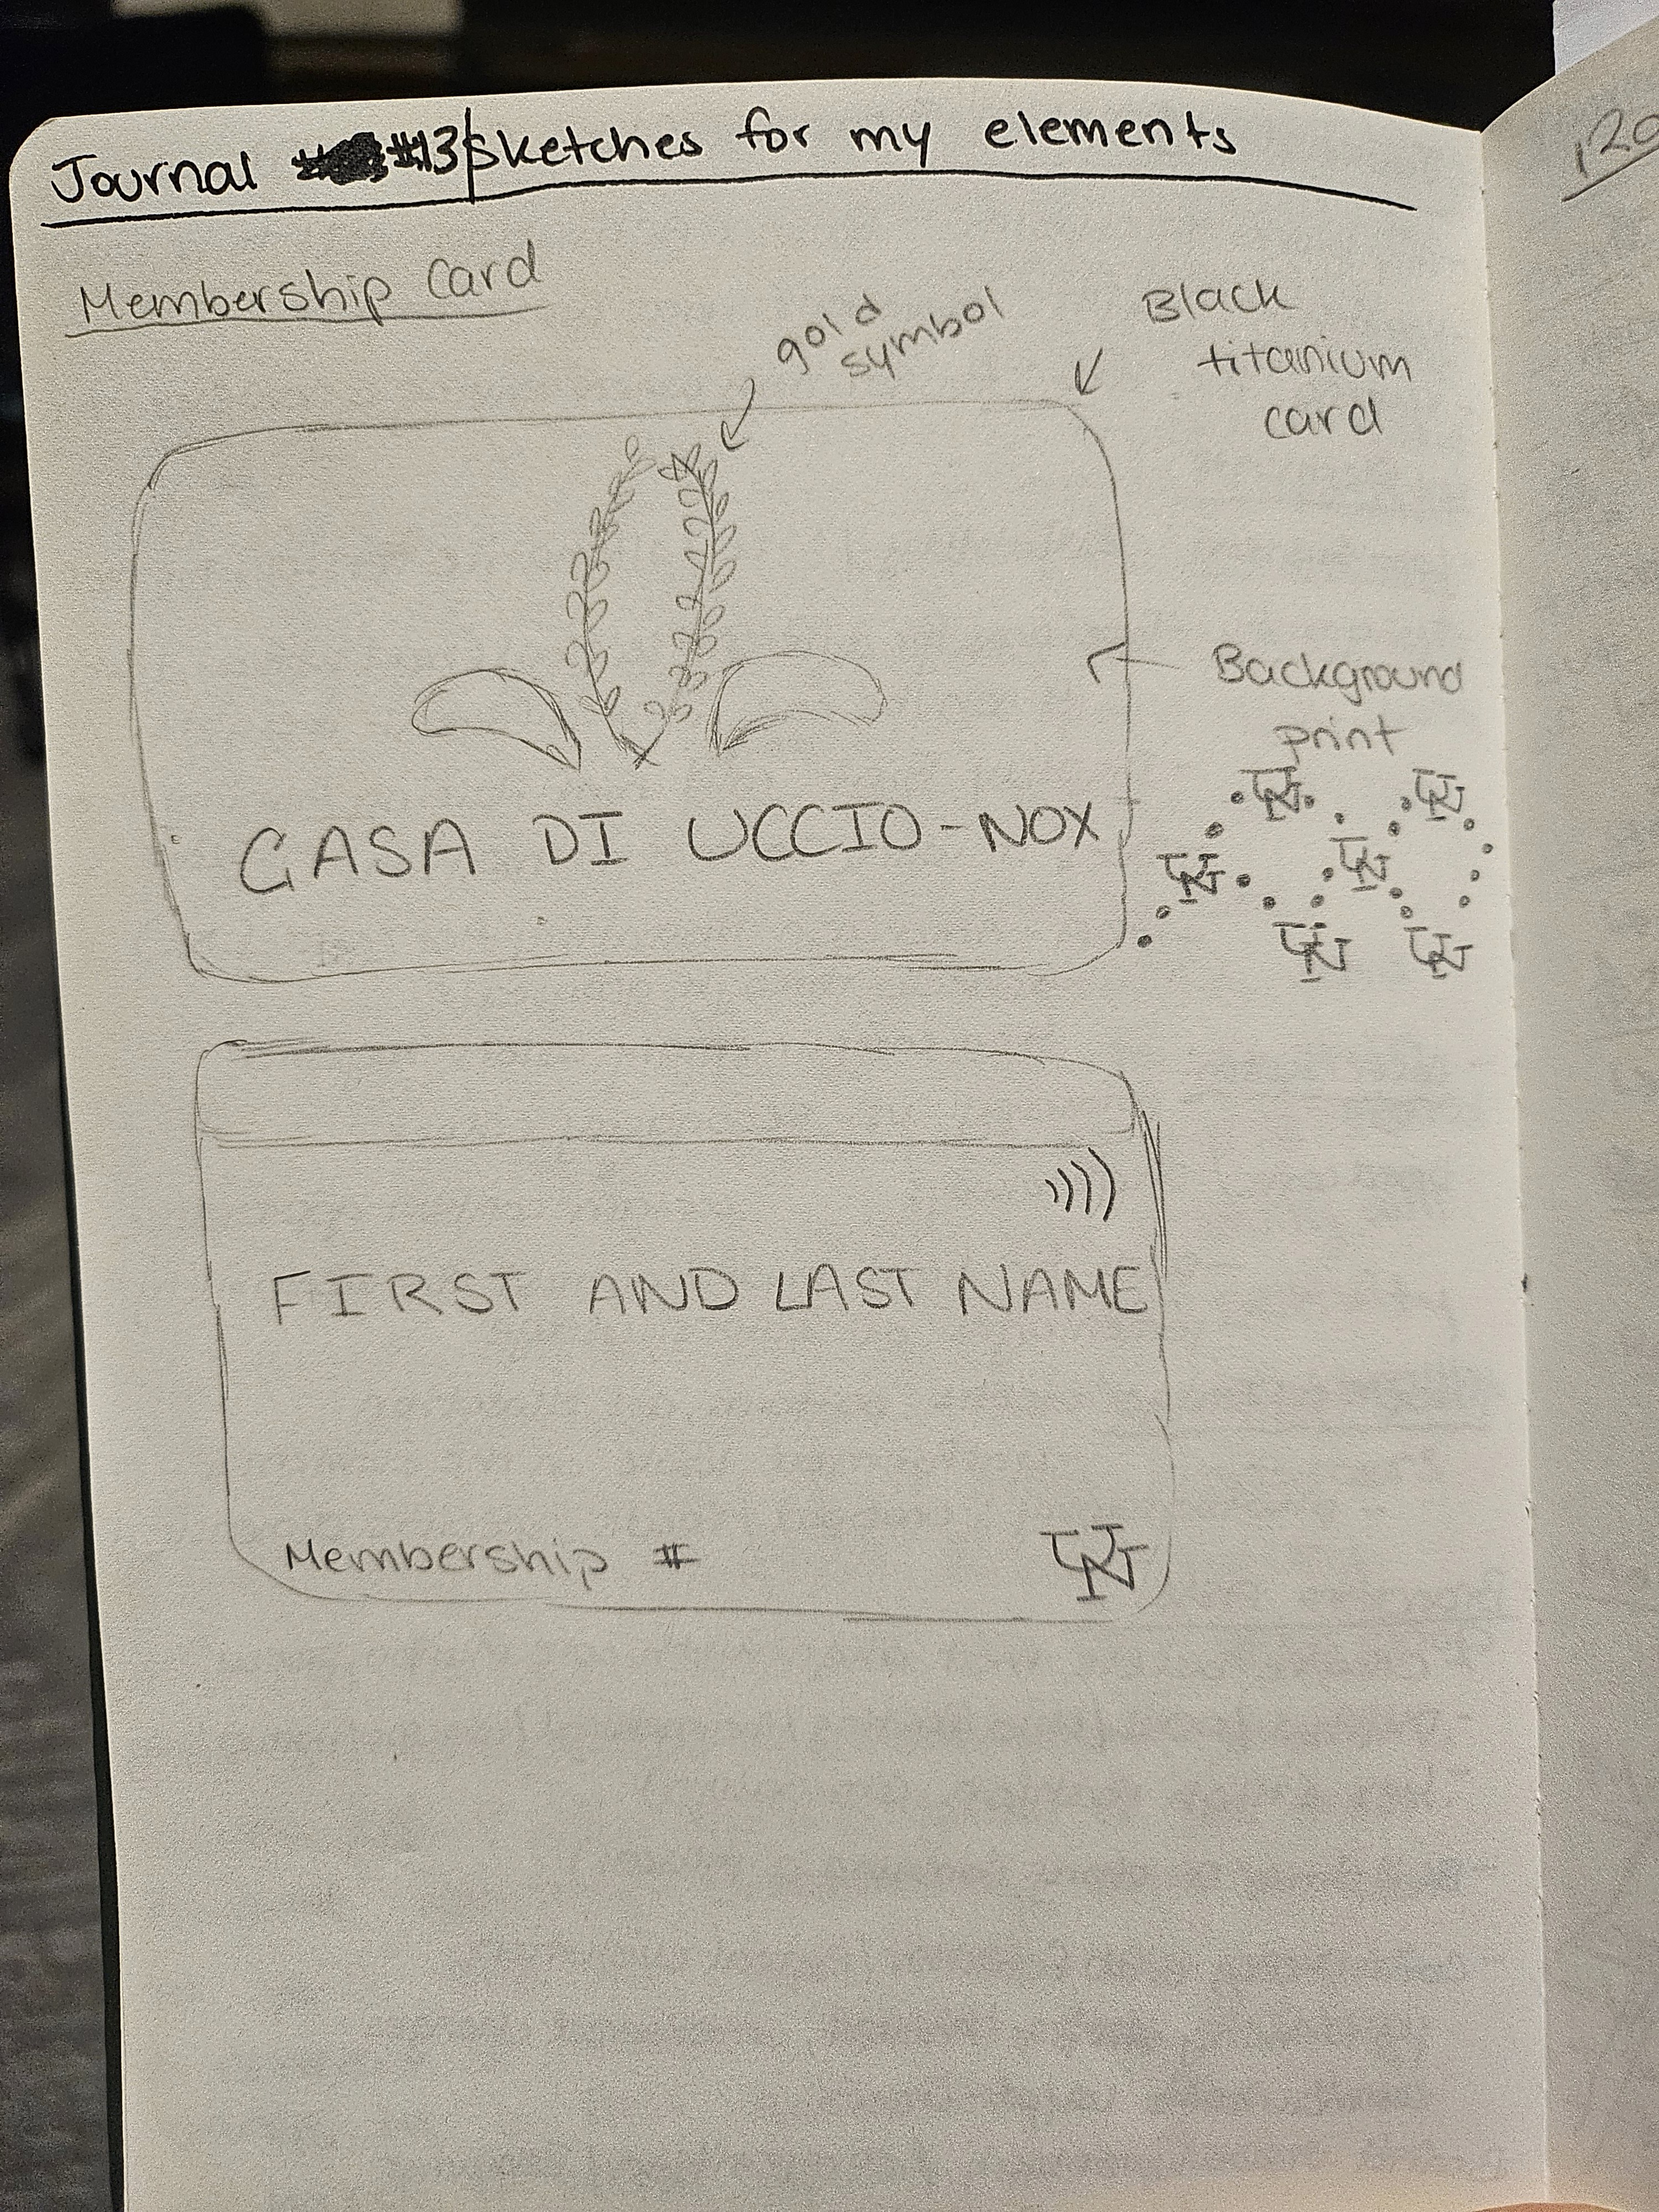 Journal #13 Sketches for my elements
Membership Card
gold
symbol
Black
titanium
card
Background
print
CASA DI UCCIO-NOX
UN UN
UN UN
UN UN
FIRST AND LAST NAME
Membership #
UN